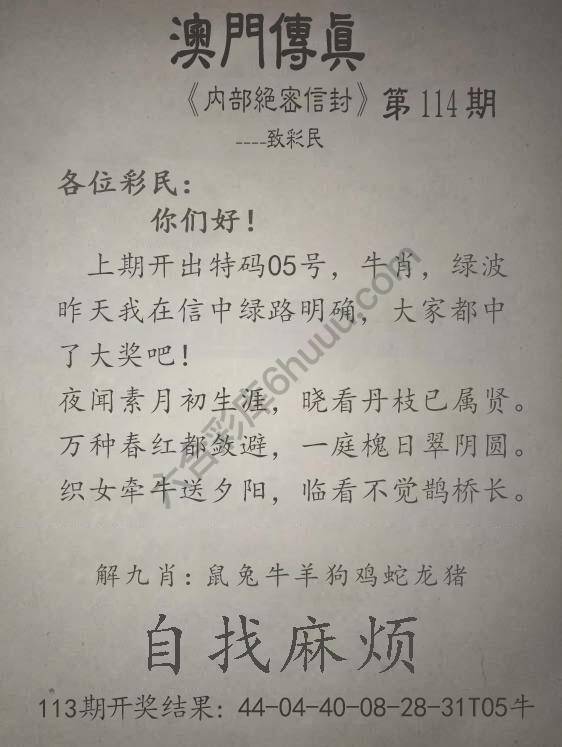 澳門傳眞
《内部絕密信封》第114期
----致彩民
各位彩民：
你们好！
上期开出特码05号，牛肖，绿波
昨天我在信中绿路明确，大家都中
了大奖吧！
夜闻素月初生涯，晓看丹枝已属贤。
万种春红都敛避，一庭槐日翠阴圆。
织女牵牛送夕阳，临看不觉鹊桥长。
解九肖：鼠兔牛羊狗鸡蛇龙猪
自找麻烦
113期开奖结果：44-04-40-08-28-31T05牛
六合彩库6huuu.com